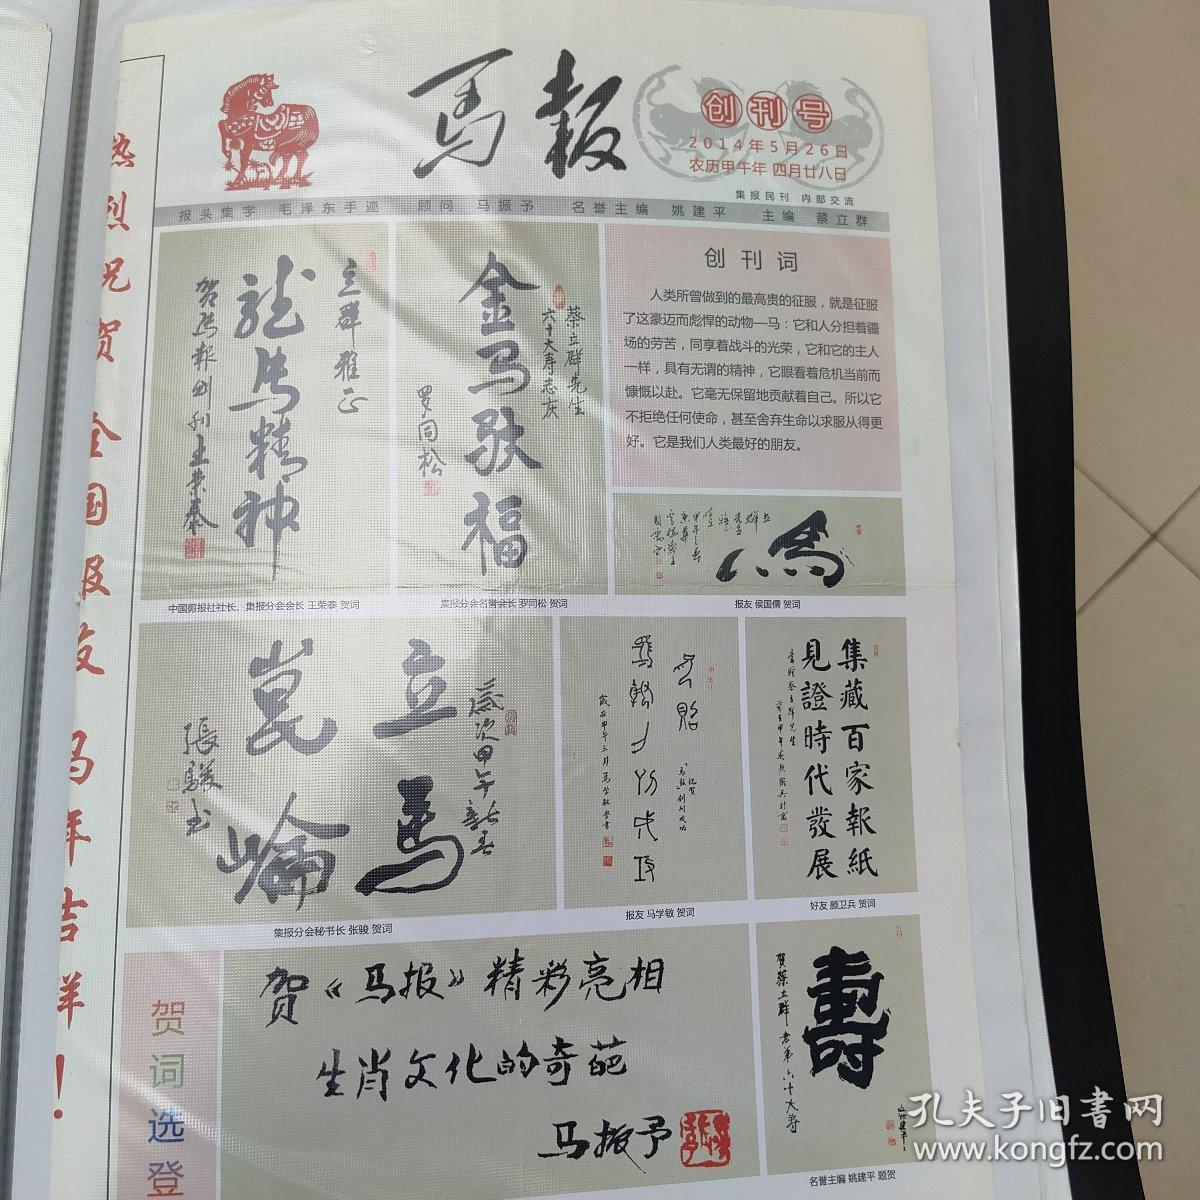 馬報
创刊号
2014年5月26日
农历甲午年 四月廿八日
集报民刊 内部交流
报头集字 毛泽东手迹 顾问 马振予 名誉主编 姚建平 主编 蔡立群
热烈祝贺全国报友马年吉祥!
立群雅正
龙马精神
贺马报创刊 王荣泰
中国剪报社社长、集报分会会长 王荣泰 贺词
蔡立群先生
六十大寿志庆
金马驮福
罗同松
集报分会名誉会长 罗同松 贺词
创刊词
人类所曾做到的最高贵的征服,就是征服
了这豪迈而彪悍的动物—马:它和人分担着疆
场的劳苦,同享着战斗的光荣,它和它的主人
一样,具有无谓的精神,它眼看着危机当前而
慷慨以赴。它毫无保留地贡献着自己。所以它
不拒绝任何使命,甚至舍弃生命以求服从得更
好。它是我们人类最好的朋友。
报友 侯国儒 贺词
岁次甲午新春
立马
崑崙
張駿书
集报分会秘书长 张骏 贺词
祝贺
「马报」创刊成功
岁在甲午三月马学敏学书
报友 马学敏 贺词
集藏百家報紙
見證時代發展
好友 顾卫兵 贺词
贺词选登
贺《马报》精彩亮相
生肖文化的奇葩
马振予
壽
贺蔡立群老弟六十大寿
名誉主编 姚建平 题贺
孔夫子旧书网
www.kongfz.com